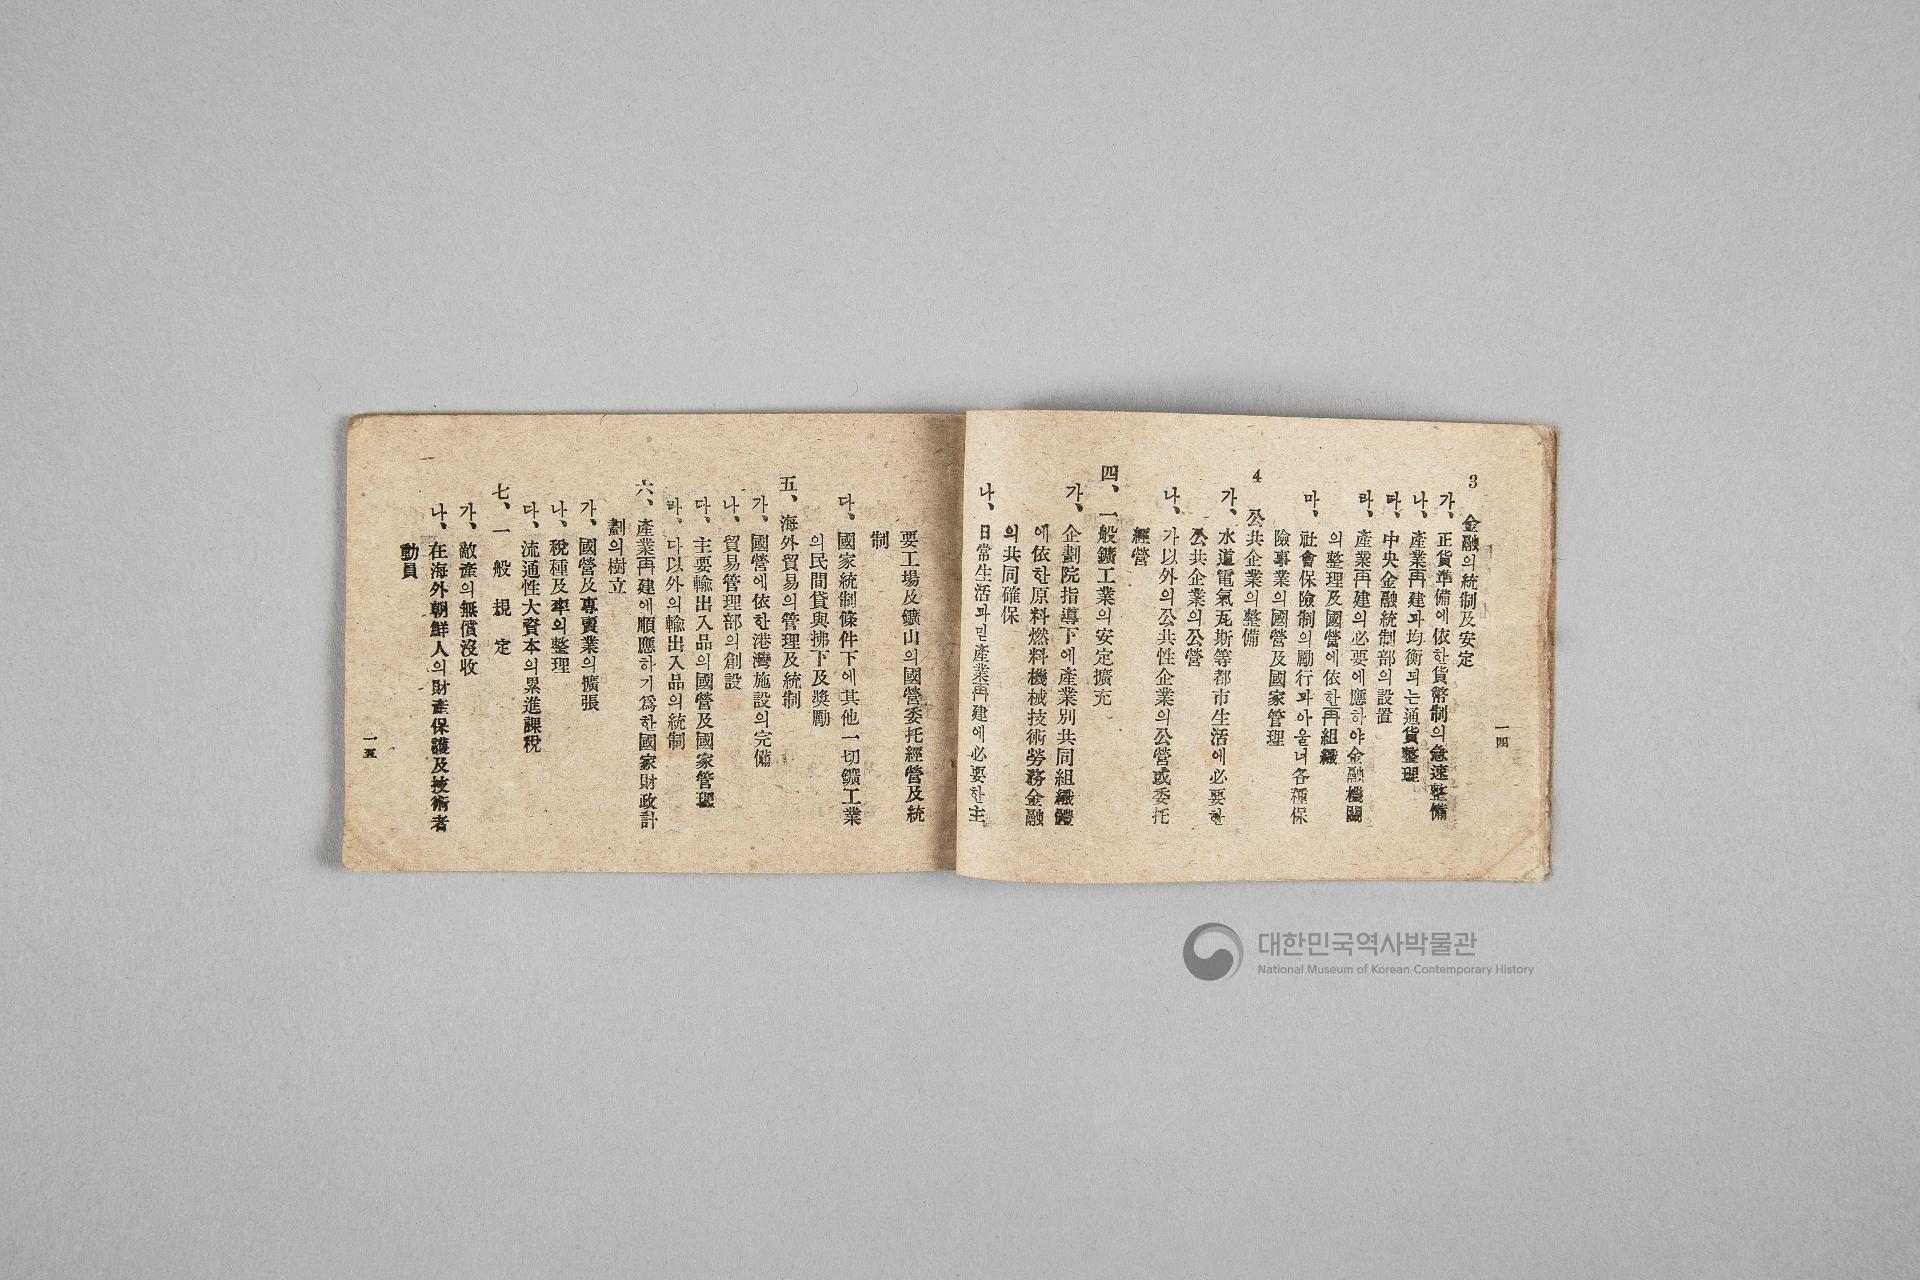 一四
3 金融의統制及安定
가、正貨準備에依한貨幣制의急速整備
나、產業再建과均衡되는通貨整理
다、中央金融統制部의設置
라、產業再建의必要에應하야金融機關
의整理及國營에依한再組織
마、社會保險制의勵行과아울너各種保
險事業의國營及國家管理
4 公共企業의整備
가、水道電氣瓦斯等都市生活에必要한
公共企業의公營
나、가以外의公共性企業의公營或委托
經營
四、一般鑛工業의安定擴充
가、企劃院指導下에產業別共同組織體
에依한原料燃料機械技術勞務金融
의共同確保
나、日常生活과밋產業再建에必要한主
要工場及鑛山의國營委托經營及統
制
다、國家統制條件下에其他一切鑛工業
의民間貸與拂下及獎勵
五、海外貿易의管理及統制
가、國營에依한港灣施設의完備
나、貿易管理部의創設
다、主要輸出入品의國營及國家管理
라、다以外의輸出入品의統制
六、產業再建에順應하기爲한國家財政計
劃의樹立
가、國營及專賣業의擴張
나、稅種及率의整理
다、流通性大資本의累進課稅
七、一般規定
가、敵產의無償沒收
나、在海外朝鮮人의財產保護及技術者
動員
一五
대한민국역사박물관
National Museum of Korean Contemporary History